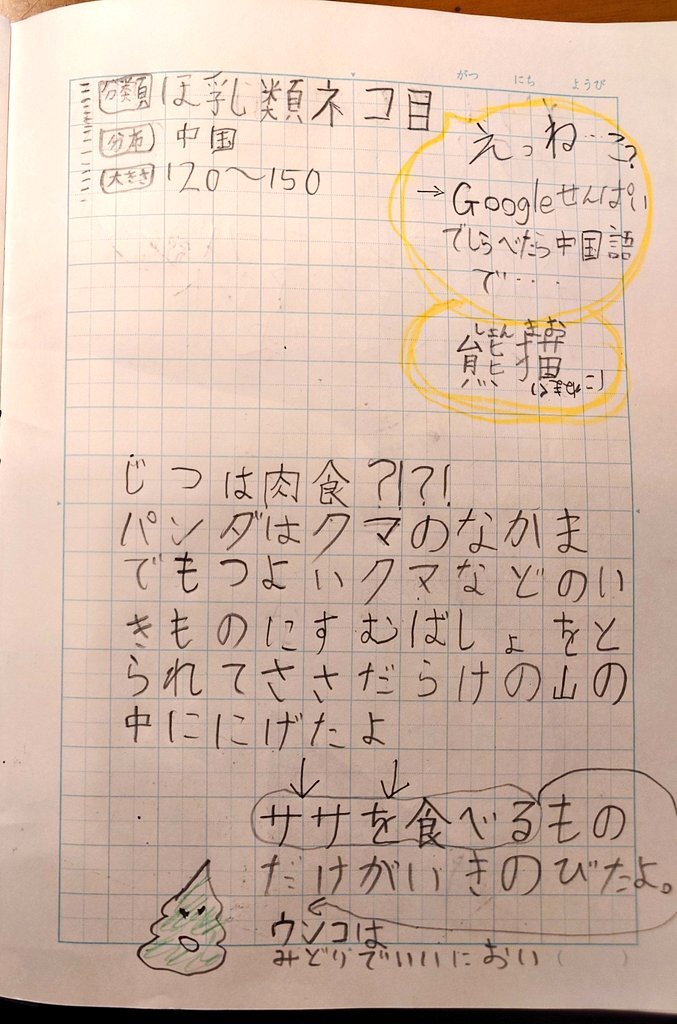 がつ にち ようび
分類 ほ乳類ネコ目
分布 中国
大きさ 120〜150
えっね…こ?
→Googleせんぱい
でしらべたら中国語
で・・・
しょん まお
熊猫
くまねこ
じつは肉食?!?!
パンダはクマのなかま
でもつよいクマなどのい
きものにすむばしょをと
られてささだらけの山の
中ににげたよ
↓ ↓
ササを食べるもの
だけがいきのびたよ。
ウンコは
みどりでいいにおい